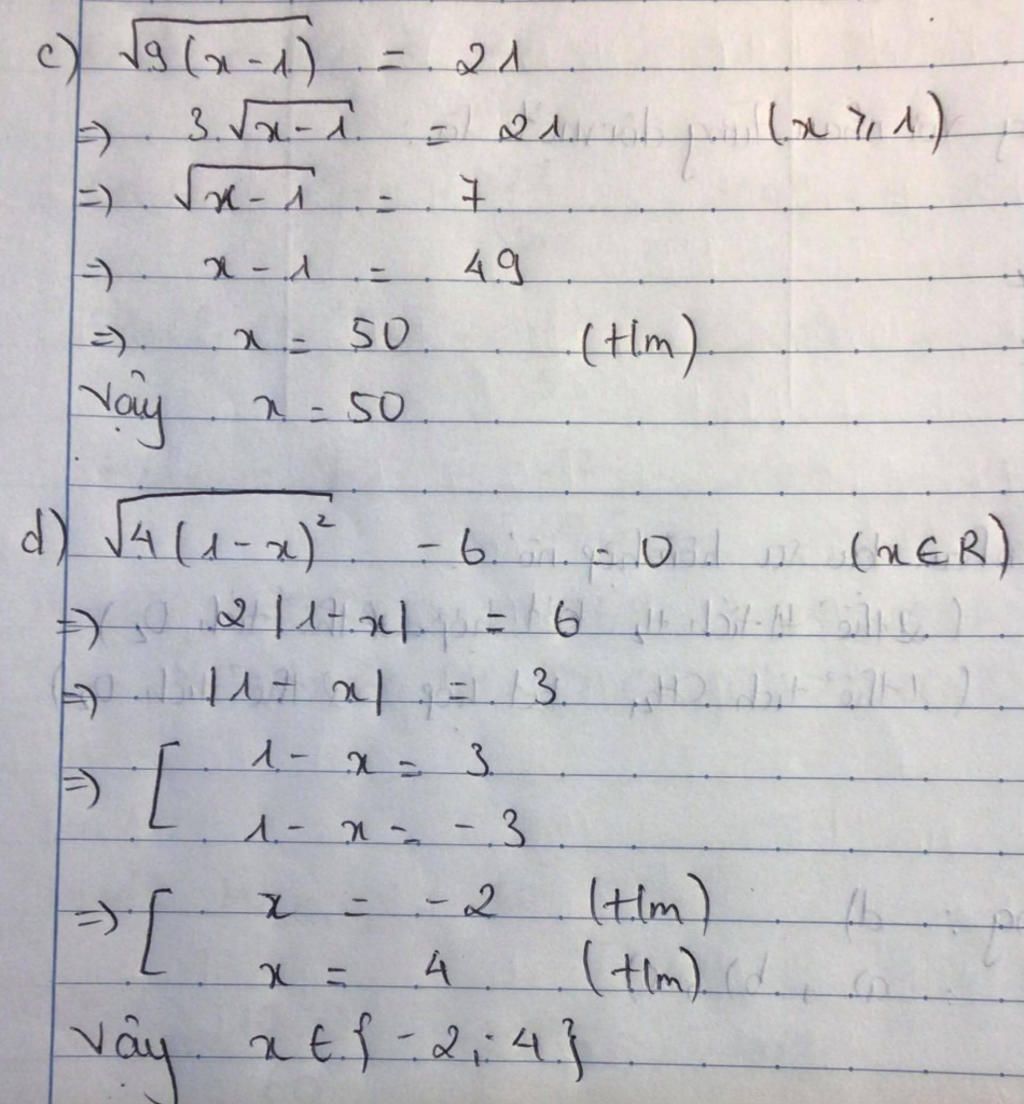 c) √9(x-1) = 21
=> 3.√x-1 = 21 (x ⩾ 1)
=> √x-1 = 7
=> x - 1 = 49
=> x = 50 (t/m)
Vậy x = 50
d) √4(1-x)² - 6 = 0 (x ∈ R)
=> 2|1-x| = 6
=> |1-x| = 3
=> [ 1 - x = 3
1 - x = -3
=> [ x = -2 (t/m)
x = 4 (t/m)
Vậy x ∈ {-2; 4}